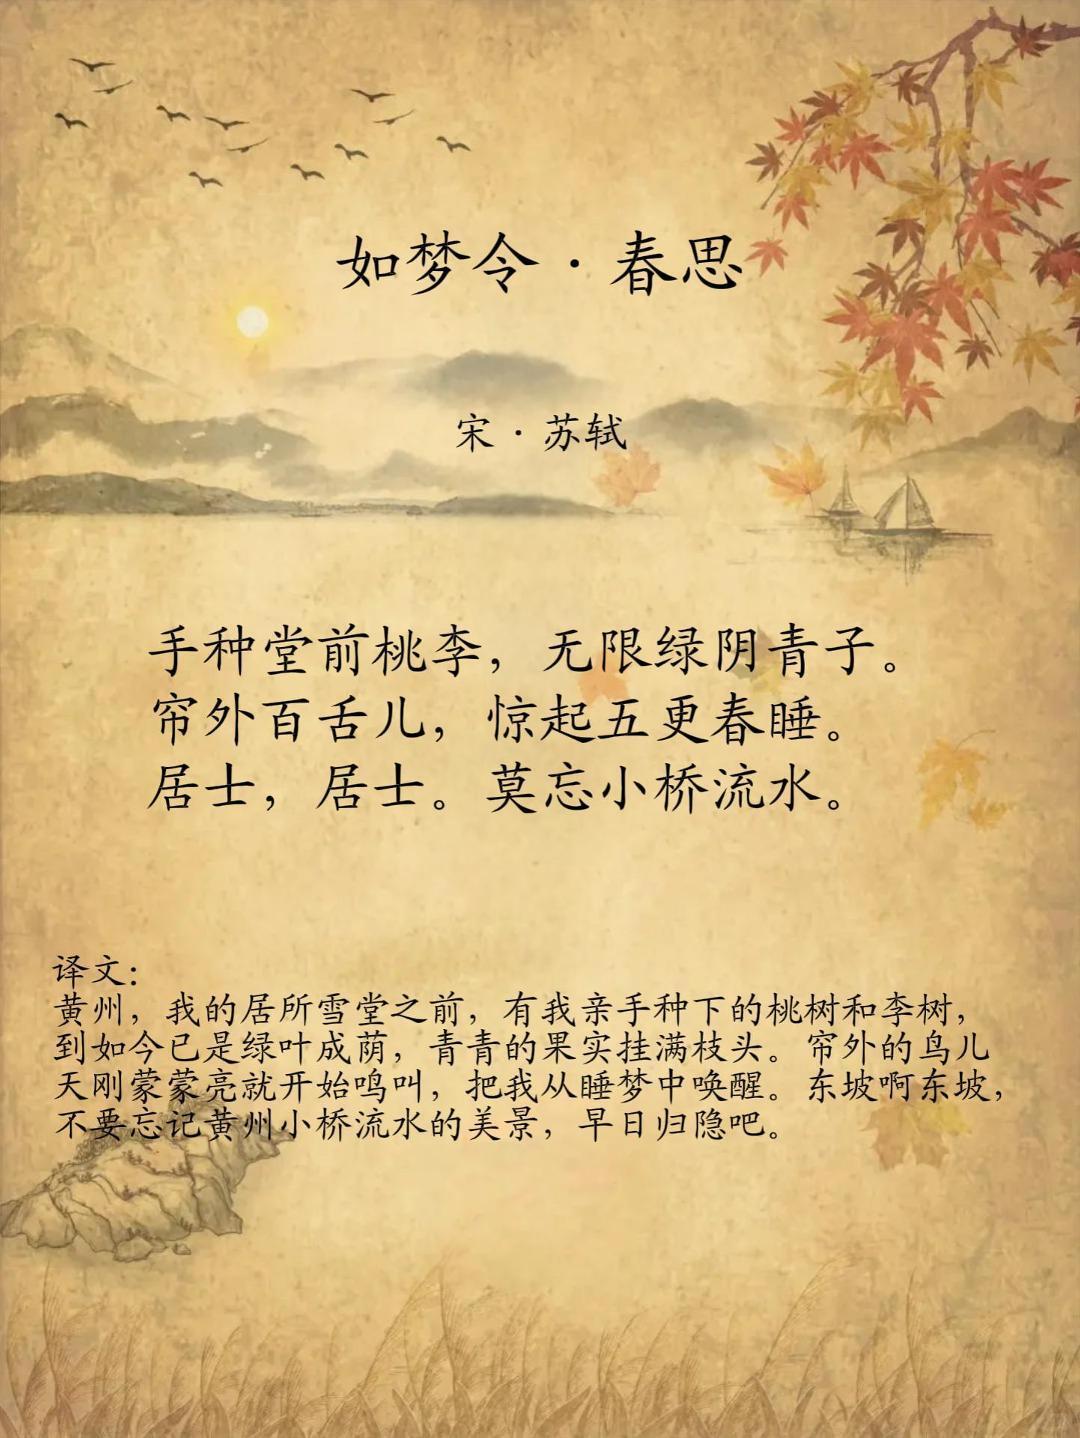 如梦令·春思
宋·苏轼
手种堂前桃李，无限绿阴青子。
帘外百舌儿，惊起五更春睡。
居士，居士。莫忘小桥流水。
译文：
黄州，我的居所雪堂之前，有我亲手种下的桃树和李树，
到如今已是绿叶成荫，青青的果实挂满枝头。帘外的鸟儿
天刚蒙蒙亮就开始鸣叫，把我从睡梦中唤醒。东坡啊东坡，
不要忘记黄州小桥流水的美景，早日归隐吧。